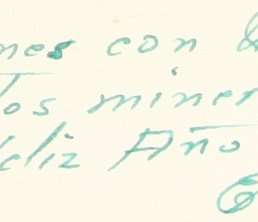 nes con
los miner
eliz Año